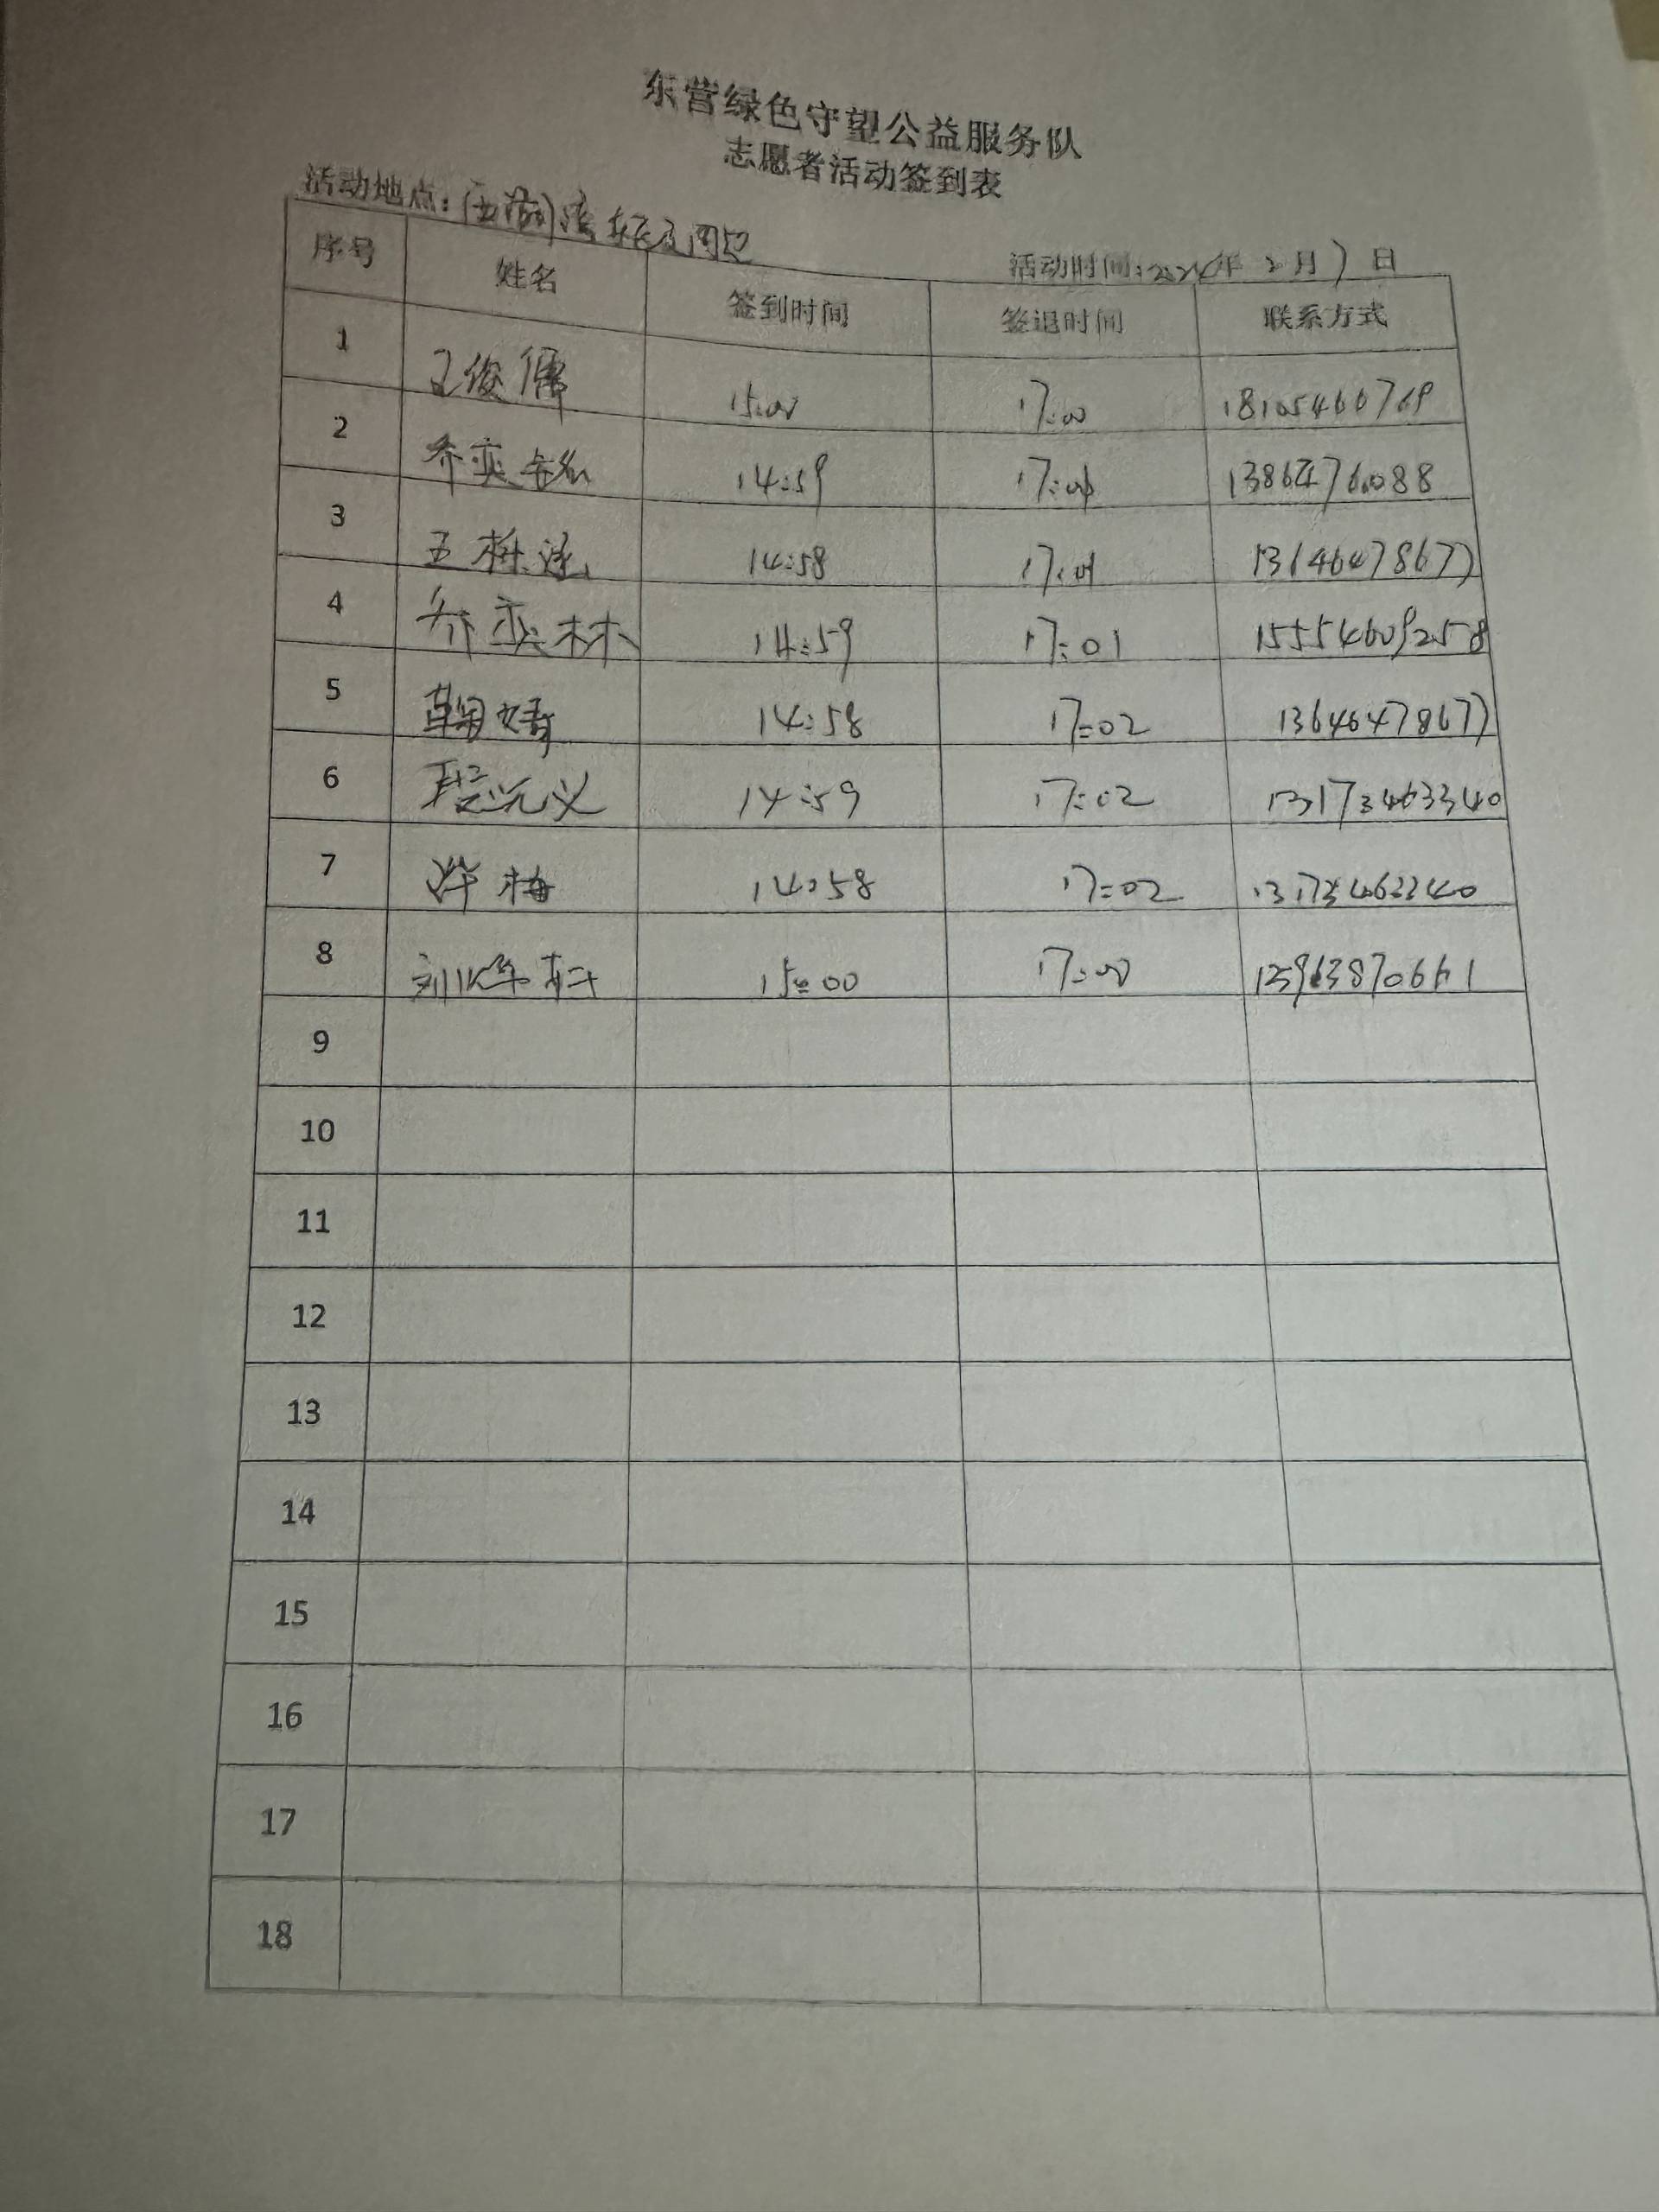 东营绿色守望公益服务队
志愿者活动签到表
活动地点：
活动时间： 年 2月7日
序号 姓名 签到时间 签退时间 联系方式
1 王俊儒 15:00 17:00 18105460769
2 乔奕 14:59 17:00
3 王 14:58 17:01 13646478677
4 乔奕林 14:59 17:01 15554609258
5 鞠婧 14:58 17:02 13646478677
6 程元义 14:59 17:02 13173463340
7 许梅 14:58 17:02 13173463340
8 刘 15:00 17:00
9
10
11
12
13
14
15
16
17
18